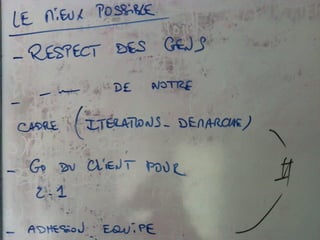 LE MIEUX POSSIBLE
- RESPECT DES GENS
- — DE NOTRE
CADRE (ITERATIONS - DEMARCHE)
- GO DU CLIENT POUR
2.1
- ADHESION EQUIPE